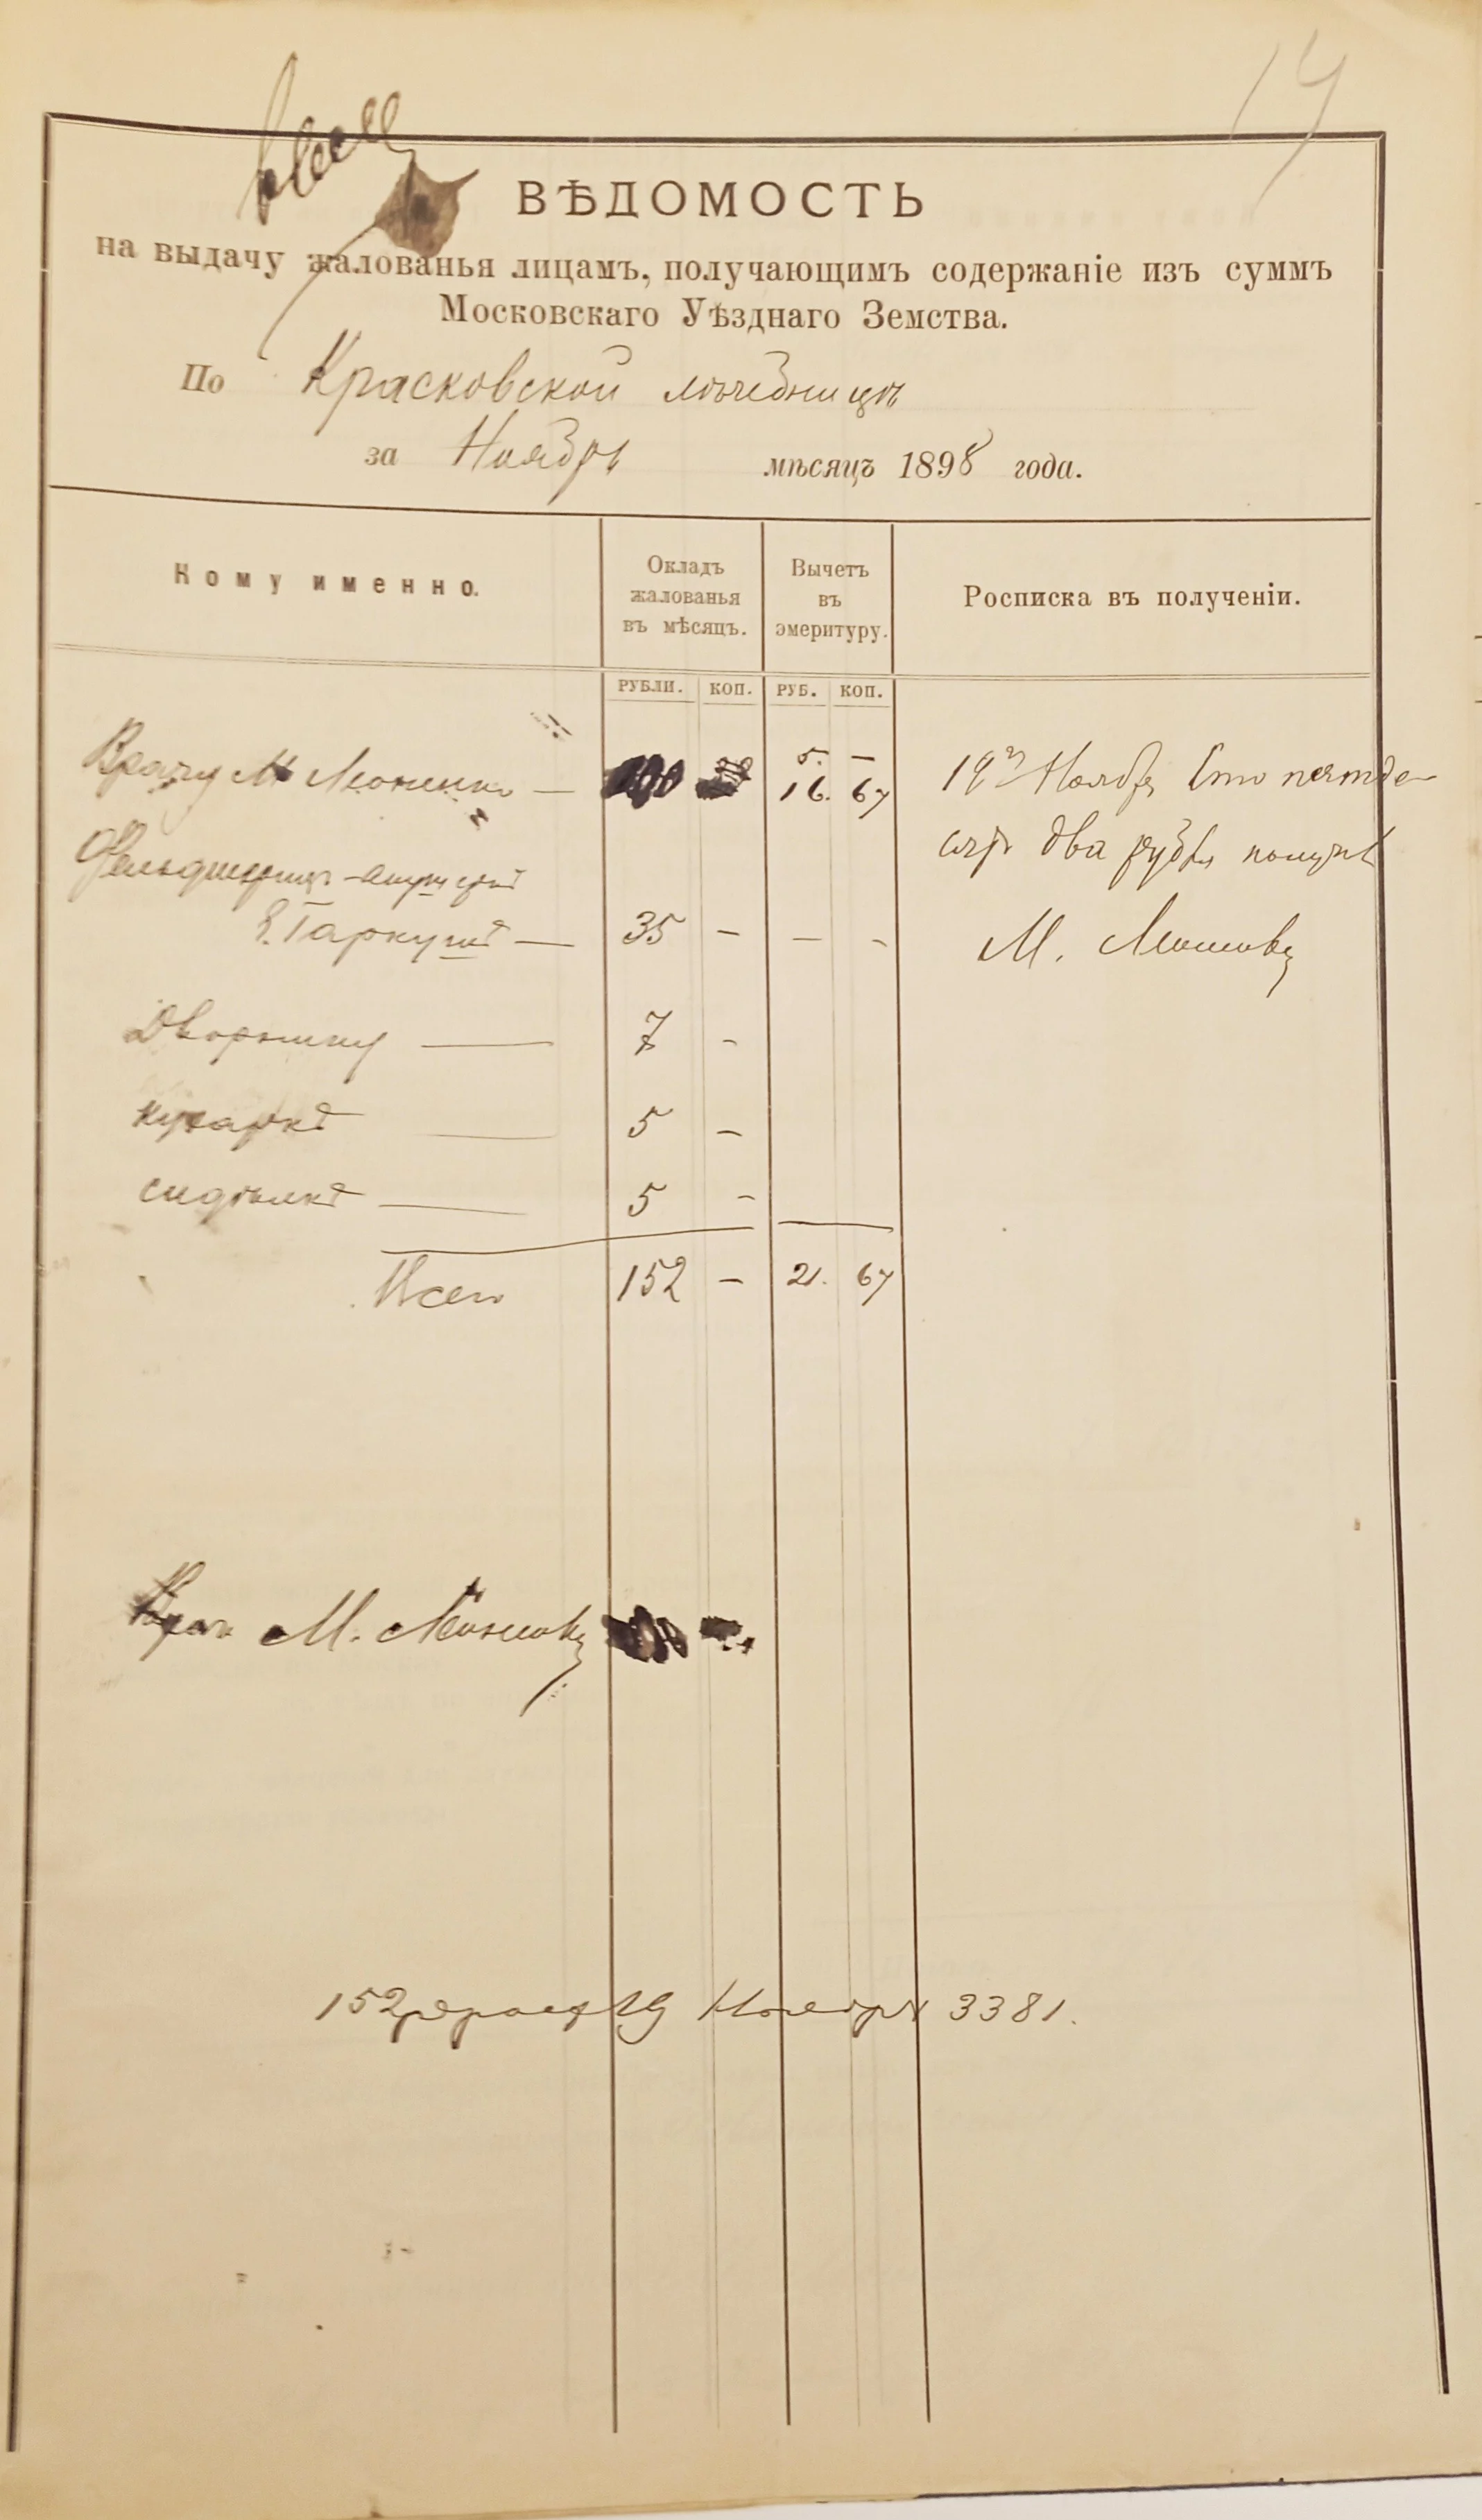 14
ВѢДОМОСТЬ
на выдачу жалованья лицамъ, получающимъ содержаніе изъ суммъ
Московскаго Уѣзднаго Земства.
По Красковской лѣчебницѣ
за Ноябрь мѣсяцъ 1898 года.
Кому именно.
Окладъ жалованья въ мѣсяцъ.
Вычетъ въ эмеритуру.
Росписка въ полученіи.
РУБЛИ. КОП. РУБ. КОП.
5. —
Врачу М — 100 16. 67
19го Ноября Сто пятде-
сятъ два рубля получ
Фельдшериц-акушеркѣ
— 35 – — –
М.
Дворнику — 7 –
Кухаркѣ — 5 –
Сидѣлкѣ — 5 –
Всего 152 – 21. 67
Врач М. 100
152 19 Ноября 3381.